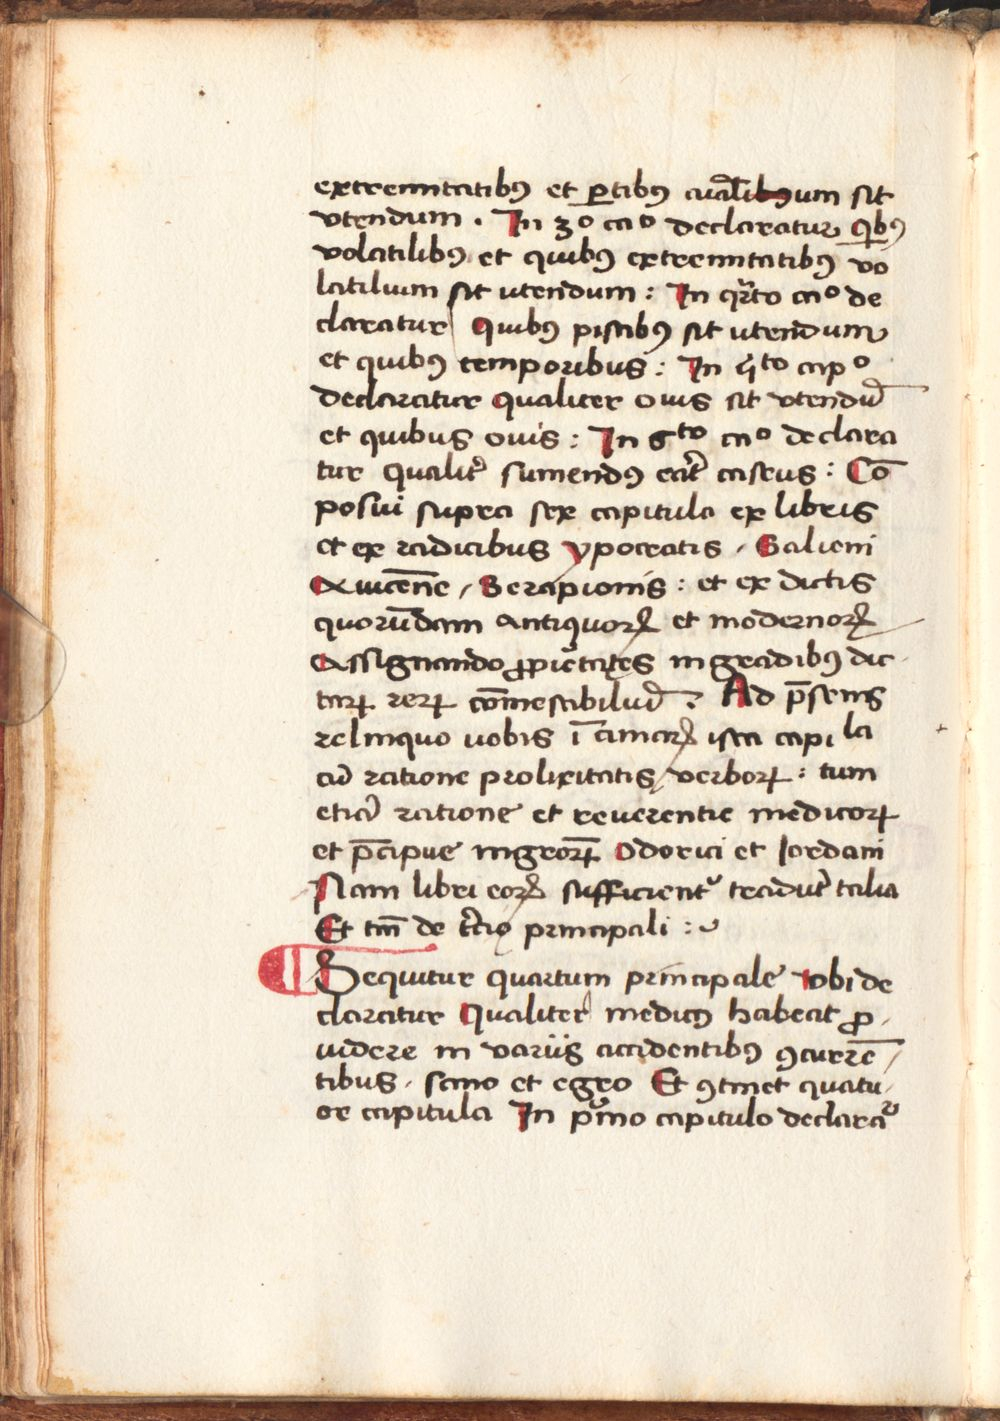 extremitatibꝰ et ꝑtibꝰ aīalibꝰum sit
vtendum . In 3º caº declaratur qͥbꝰ
volatilibꝰ et quibꝰ extremitatibꝰ vo
latilium sit utendum : In qͣrto caº de
claratur quibꝰ piscibꝰ sit utendum
et quibꝰ temporibus : In qͥto capº
declaratur qualiter ouis sit vtendū
et quibus ouis : In 6to caº declara
tur qualit͛ sumendꝰ erit caseus : Cō
posui supra sex capitula ex libris
et ex radicibus ypocratis / Galieni
Auicēne / Serapionis : et ex dictis
quorūdam antiquoꝝ et modernoꝝ
Assignando ꝓpiētates in gradibꝰ dic
taꝝ reꝝ cōmestabiliū : Ad p̄sens
relinquo uobis ista capi la
cū ratione prolixitatis verboꝝ : tum
etiā ratione et reuerentie medicoꝝ
et p̄cipue mgroꝝ Odorici et Iordani
Nam libri eoꝝ sufficient᷑ tradūt talia
Et tm̄ de t͛cio principali :
¶ Sequitur quartum principale vbi de
claratur Qualiter medicꝰ habeat ꝓ
uidere in variis accidentibꝰ ꝯcurrē/
tibus . sano et egro Et ꝯtinet quatu
or capitula In pͥmo capitulo declara᷑